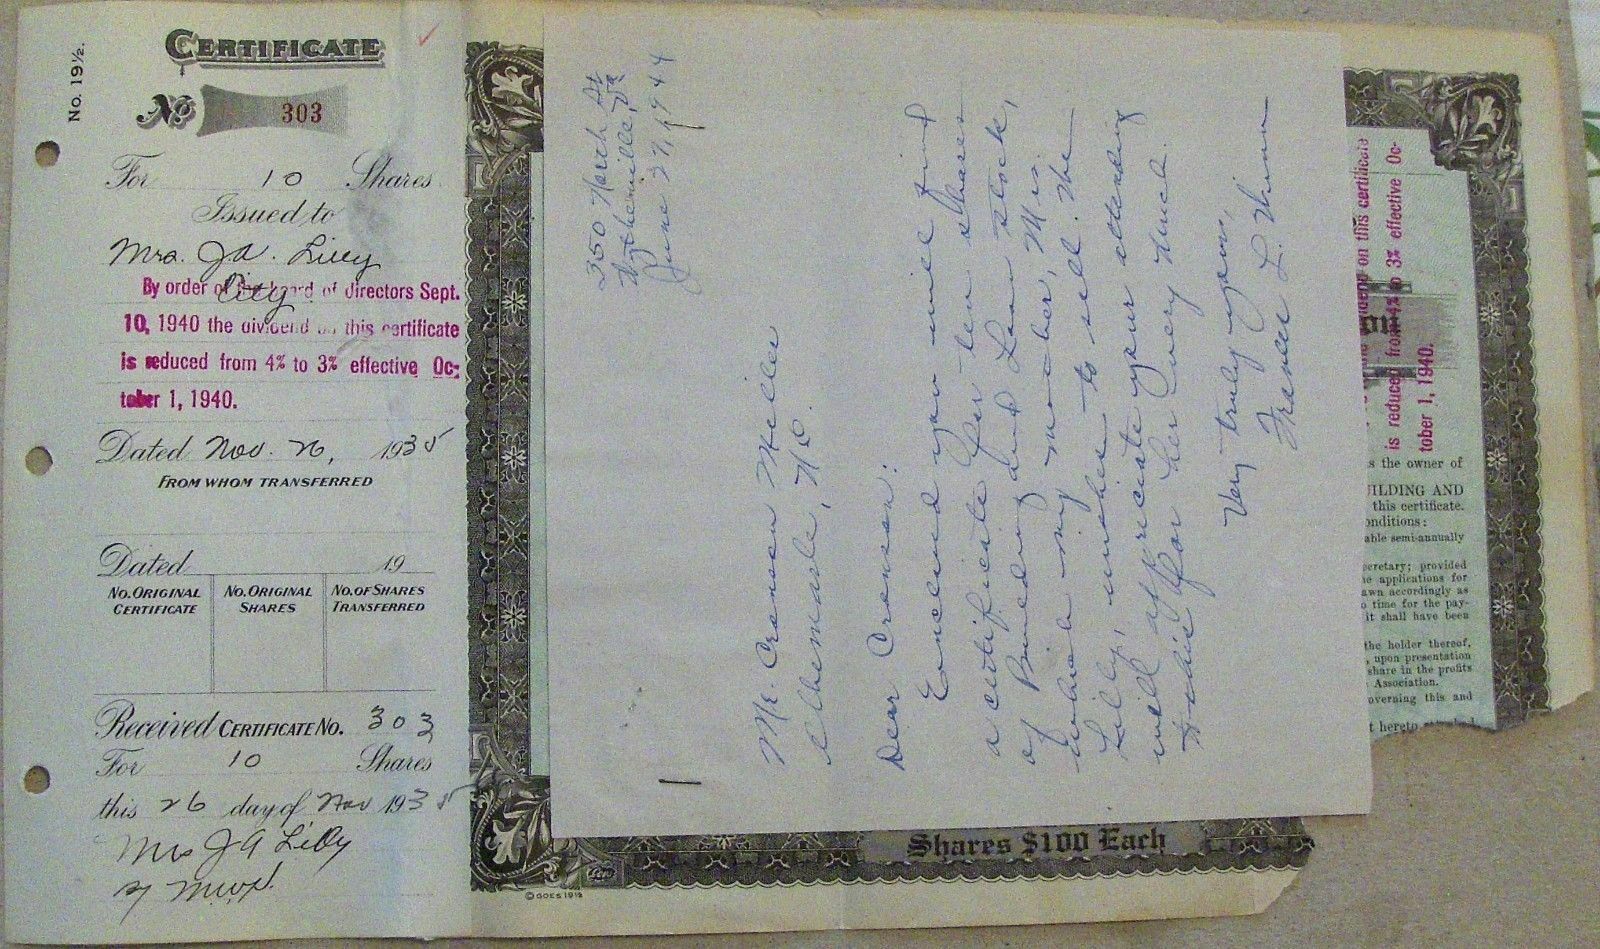 No. 19½.
CERTIFICATE
No 303
For 10 Shares
Issued to
Mrs. J A. Lilly
City
By order of the board of directors Sept.
10, 1940 the dividend on this certificate
is reduced from 4% to 3% effective Oc-
tober 1, 1940.
Dated Nov. 26, 1935
FROM WHOM TRANSFERRED
Dated 19
NO. ORIGINAL CERTIFICATE
NO. ORIGINAL SHARES
NO. OF SHARES TRANSFERRED
Received CERTIFICATE NO. 303
For 10 Shares
this 26 day of Nov 1935
Mrs J A Lilly
350 North St
Wytheville, Va
June 27, 1944
Mr. Craven Miller
Albemarle, N.C.
Dear Craven:
Enclosed you will find
a certificate for ten shares
of Building and Loan stock,
which my mother, Mrs.
Lilly, wishes to sell. She
will appreciate your attending
to this for her very much.
Very truly yours,
Frances L.
Shares $100 Each
©GOES 1912
on this certificate
is reduced from 4% to 3% effective Oc-
tober 1, 1940.
is the owner of
UILDING AND
this certificate.
onditions:
able semi-annually
cretary; provided
applications for
awn accordingly as
time for the pay-
it shall have been
the holder thereof,
upon presentation
share in the profits
Association.
overning this and
t hereto